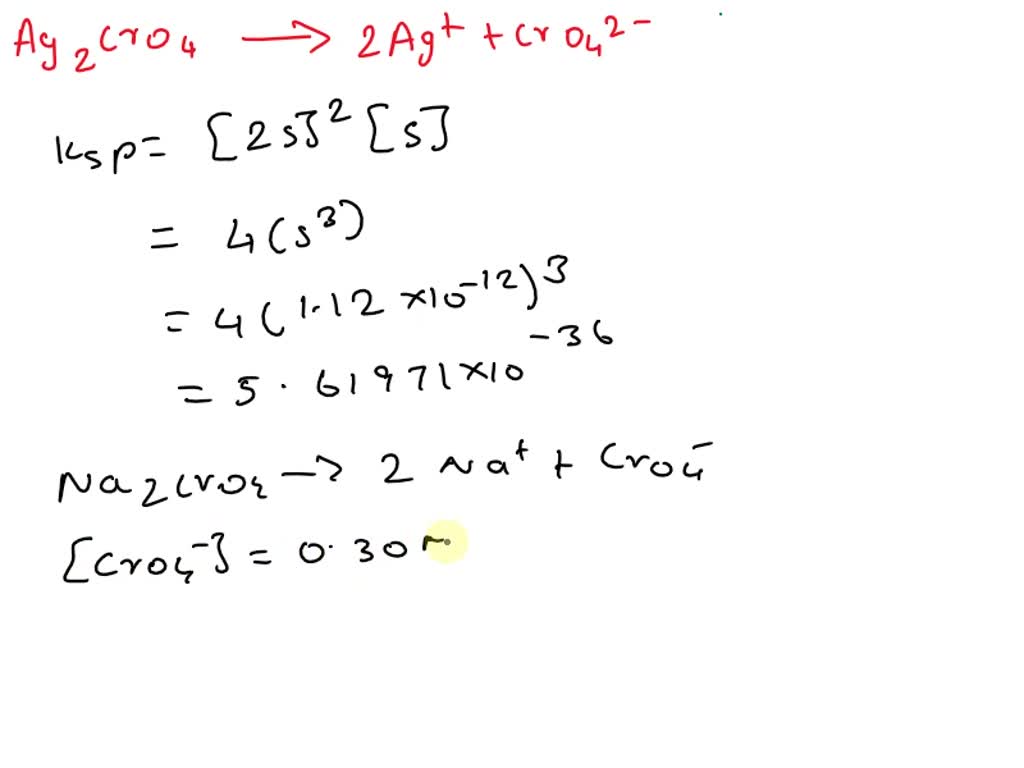 Ag2CrO4 → 2Ag+ + CrO4 2-
Ksp = [2s]² [s]
= 4(s³)
= 4(1.12 ×10⁻¹²)³
= 5.61971×10⁻³⁶
Na2CrO4 → 2 Na+ + CrO4⁻
[CrO4⁻] = 0.30